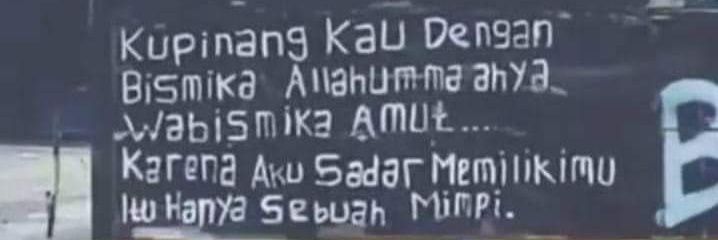 Kupinang Kau Dengan
Bismika Allahumma ahya
Wabismika Amut....
Karena Aku Sadar Memilikimu
Itu Hanya Sebuah Mimpi.